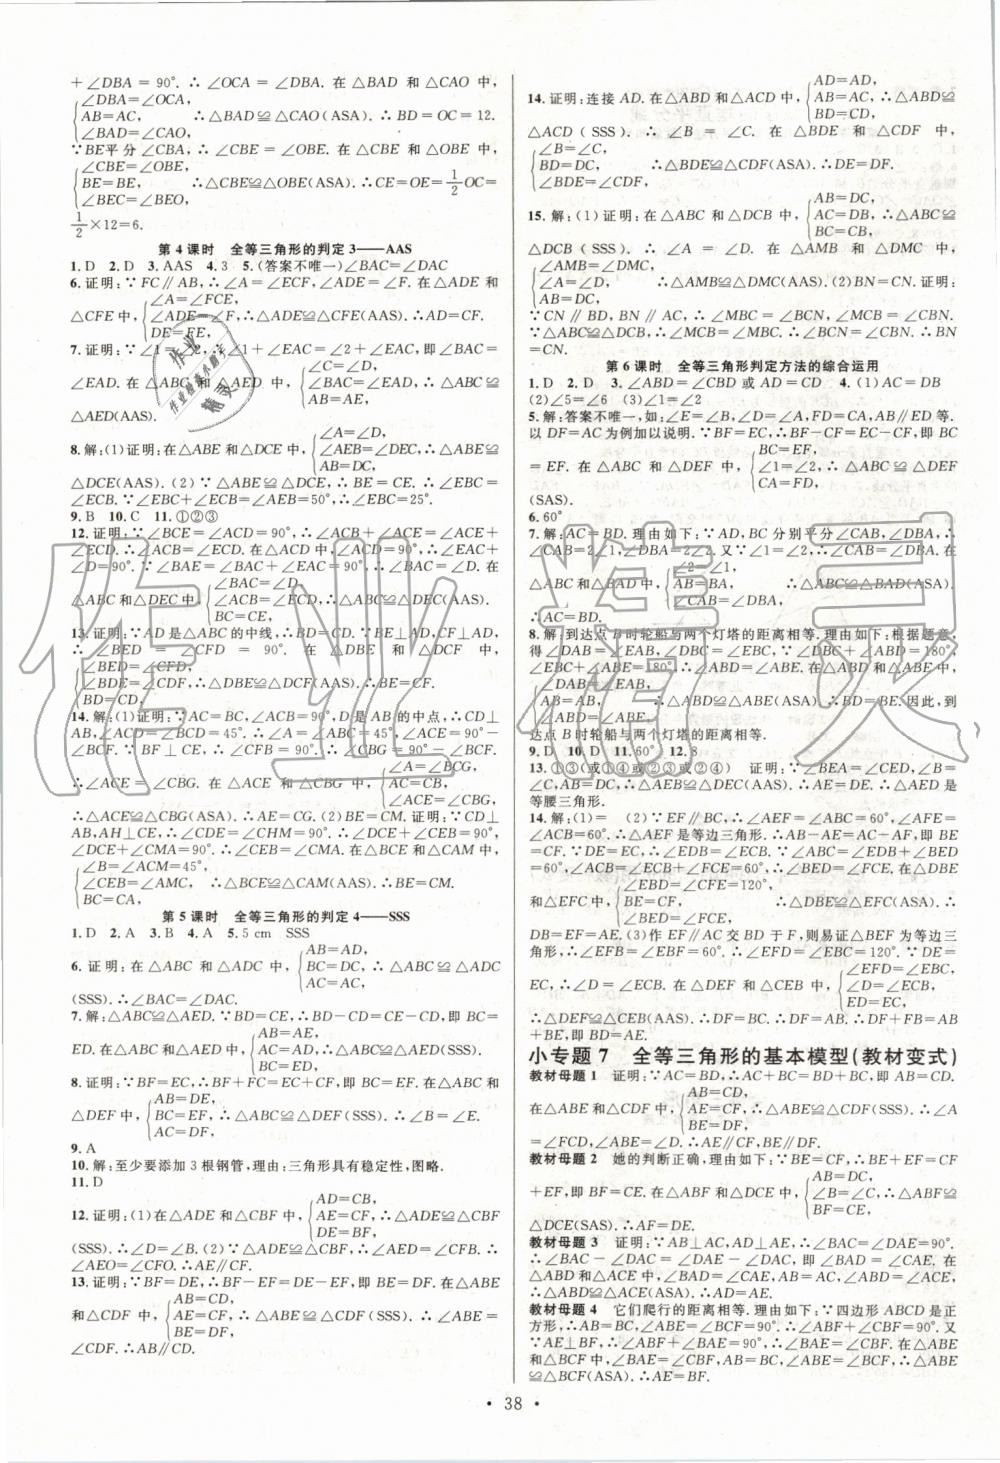 ＋∠DBA＝90°.∴∠OCA＝∠DBA.在△BAD和△CAO中,
∠DBA＝∠OCA,
AB＝AC,
∠BAD＝∠CAO,
∴△BAD≌△CAO(ASA).∴BD＝OC＝12.
∵BE平分∠CBA,∴∠CBE＝∠OBE.在△CBE和△OBE中,
∠CBE＝∠OBE,
BE＝BE,
∠BEC＝∠BEO,
∴△CBE≌△OBE(ASA).∴CE＝OE＝1/2 OC＝
1/2×12＝6.
第4课时 全等三角形的判定3——AAS
1.D 2.D 3.AAS 4.3 5.(答案不唯一)∠BAC＝∠DAC
6.证明:∵FC∥AB,∴∠A＝∠ECF,∠ADE＝∠F.在△ADE和
△CFE中,
∠A＝∠FCE,
∠ADE＝∠F,
DE＝FE,
∴△ADE≌△CFE(AAS).∴AD＝CF.
7.证明:∵∠1＝∠2,∴∠1＋∠EAC＝∠2＋∠EAC,即∠BAC＝
∠EAD.在△ABC和△AED中,
∠C＝∠D,
∠BAC＝∠EAD,
AB＝AE,
∴△ABC≌
△AED(AAS).
8.解:(1)证明:在△ABE和△DCE中,
∠A＝∠D,
∠AEB＝∠DEC,
AB＝DC,
∴△ABE≌
△DCE(AAS).(2)∵△ABE≌△DCE,∴BE＝CE.∴∠EBC＝
∠ECB.∵∠EBC＋∠ECB＝∠AEB＝50°,∴∠EBC＝25°.
9.B 10.C 11.①②③
12.证明:∵∠BCE＝∠ACD＝90°,∴∠ACB＋∠ACE＝∠ACE＋
∠ECD.∴∠ACB＝∠ECD.在△ACD中,∠ACD＝90°,∴∠CAD＋∠D
＝90°.∵∠BAE＝∠BAC＋∠CAD＝90°,∴∠BAC＝∠D.在
△ABC和△DEC中,
∠BAC＝∠D,
∠ACB＝∠DCE,
BC＝CE,
∴△ABC≌△DEC(AAS).
13.证明:∵AD是△ABC的中线,∴BD＝CD.∵BE⊥AD,CF⊥AD,
∴∠BED＝∠CFD＝90°.在△DBE和△DCF中,
∠BED＝∠CFD,
∠BDE＝∠CDF,
BD＝CD,
∴△DBE≌△DCF(AAS).∴BE＝CF.
14.解:(1)证明:∵AC＝BC,∠ACB＝90°,D是AB的中点,∴CD⊥
AB,∠ACD＝∠BCD＝45°.∴∠A＝90°－∠ACD＝45°.∴∠A
＝∠BCF.∵BF⊥CE,∴∠ACE＝∠CBG＝90°－∠BCF.
∴∠ACE＝∠CBG.在△ACE和△CBG中,
∠A＝∠BCG,
AC＝CB,
∠ACE＝∠CBG,
∴△ACE≌△CBG(ASA).∴AE＝CG.(2)BE＝CM.证明:∵CD⊥
AB,AH⊥CE,∴∠CDE＝∠CHM＝90°.∴∠DCE＋∠CEB＝90°,
∠DCE＋∠CMA＝90°.∴∠CEB＝∠CMA.在△BCE和△CAM中,
∠B＝∠ACM＝45°,
∠CEB＝∠AMC,
BC＝CA,
∴△BCE≌△CAM(AAS).∴BE＝CM.
第5课时 全等三角形的判定4——SSS
1.D 2.A 3.B 4.A 5.5 cm SSS
6.证明:在△ABC和△ADC中,
AB＝AD,
BC＝DC,
AC＝AC,
∴△ABC≌△ADC
(SSS).∴∠BAC＝∠DAC.
7.解:△ABC≌△AED.∵BD＝CE,∴BD－CD＝CE－CD,即BC＝
ED.在△ABC和△AED中,
AB＝AE,
AC＝AD,
BC＝ED,
∴△ABC≌△AED(SSS).
8.证明:∵BF＝EC,∴BF＋FC＝EC＋CF,即BC＝EF.在△ABC和
△DEF中,
AB＝DE,
BC＝EF,
AC＝DF,
∴△ABC≌△DEF(SSS).∴∠B＝∠E.
9.A
10.解:至少要添加3根钢管,理由:三角形具有稳定性,图略.
11.D
12.证明:(1)在△ADE和△CBF中,
AD＝CB,
AE＝CF,
DE＝BF,
∴△ADE≌△CBF
(SSS).∴∠D＝∠B.(2)∵△ADE≌△CBF,∴∠AED＝∠CFB.
∴∠AEO＝∠CFO.∴AE∥CF.
13.证明:∵BF＝DE,∴BF－EF＝DE－EF,即BE＝DF.在△ABE
和△CDF中,
AB＝CD,
AE＝CF,
BE＝DF,
∴△ABE≌△CDF(SSS).∴∠ABE＝
∠CDF.∴AB∥CD.
14.证明:连接AD.在△ABD和△ACD中,
AD＝AD,
AB＝AC,
BD＝CD,
∴△ABD≌
△ACD(SSS).∴∠B＝∠C.在△BDE和△CDF中,
∠B＝∠C,
BD＝DC,
∠BDE＝∠CDF,
∴△BDE≌△CDF(ASA).∴DE＝DF.
15.解:(1)证明:在△ABC和△DCB中,
AB＝DC,
AC＝DB,
BC＝CB,
∴△ABC≌
△DCB(SSS).∴∠A＝∠D.在△AMB和△DMC中,
∠AMB＝∠DMC,
∠A＝∠D,
AB＝DC,
∴△AMB≌△DMC(AAS).(2)BN＝CN.证明:
∵CN∥BD,BN∥AC,∴∠MBC＝∠BCN,∠MCB＝∠CBN.
∵△ABC≌△DCB,∴∠MCB＝∠MBC.∴∠BCN＝∠CBN.∴BN
＝CN.
第6课时 全等三角形判定方法的综合运用
1.D 2.D 3.∠ABD＝∠CBD或AD＝CD 4.(1)AC＝DB
(2)∠5＝∠6 (3)∠1＝∠2
5.解:答案不唯一,如:∠E＝∠B,∠D＝∠A,FD＝CA,AB∥ED等.
以DF＝AC为例加以说明.∵BF＝EC,∴BF－CF＝EC－CF,即BC
＝EF.在△ABC和△DEF中,
BC＝EF,
∠1＝∠2,
CA＝FD,
∴△ABC≌△DEF
(SAS).
6.60°
7.解:AC＝BD.理由如下:∵AD,BC分别平分∠CAB,∠DBA,
∴∠CAB＝2∠1,∠DBA＝2∠2.又∵∠1＝∠2,∴∠CAB＝∠DBA.在
△ABC和△BAD中,
∠2＝∠1,
AB＝BA,
∠CAB＝∠DBA,
∴△ABC≌△BAD(ASA).
∴AC＝BD.
8.解:到达点B时轮船与两个灯塔的距离相等.理由如下:根据题意,
得∠DAB＝∠EAB,∠DBC＝∠EBC.∵∠DBC＋∠ABD＝180°,
∠EBC＋∠ABE＝180°,∴∠ABD＝∠ABE.在△ABD和△ABE中,
∠DAB＝∠EAB,
AB＝AB,
∠ABD＝∠ABE,
∴△ABD≌△ABE(ASA).∴BD＝BE.因此,到
达点B时轮船与两个灯塔的距离相等.
9.D 10.D 11.60° 12.8
13.①③(或①④或②③或②④) 证明:∵∠BEA＝∠CED,∠B＝
∠C,AB＝DC,∴△ABE≌△DCE(AAS).∴AE＝DE.∴△AED是
等腰三角形.
14.解:(1)＝ (2)∵EF∥BC,∴∠AEF＝∠ABC＝60°,∠AFE＝
∠ACB＝60°.∴△AEF是等边三角形.∴AB－AE＝AC－AF,即BE
＝CF.∵DE＝EC,∴∠EDB＝∠ECB.∵∠EBC＝∠EDB＋∠BED
＝60°,∠ACB＝∠ECB＋∠FCE＝60°,∴∠BED＝∠FCE.在△DBE
和△EFC中,
∠EBD＝∠CFE＝120°,
∠BED＝∠FCE,
DE＝EC,
∴△DBE≌△EFC(AAS).∴
DB＝EF＝AE.(3)作EF∥AC交BD于F,则易证△BEF为等边三
角形.∴∠EFB＝∠EBF＝60°.∴∠EFD＝∠EBC＝120°.∵DE＝
EC,∴∠D＝∠ECB.在△DEF和△CEB中,
∠EFD＝∠EBC,
∠D＝∠ECB,
ED＝EC,
∴△DEF≌△CEB(AAS).∴DF＝BC.∴DF＝AB.∴DF＋BF＝AB
＋BE,即BD＝AE.
小专题7 全等三角形的基本模型(教材变式)
教材母题1 证明:∵AC＝BD,∴AC＋BC＝BD＋BC,即AB＝CD.
在△ABE和△CDF中,
AB＝CD,
AE＝CF,
BE＝DF,
∴△ABE≌△CDF(SSS).∴∠A
＝∠FCD,∠ABE＝∠D.∴AE∥CF,BE∥DF.
教材母题2 她的判断正确,理由如下:∵BE＝CF,∴BE＋EF＝CF
＋EF,即BF＝CE.在△ABF和△DCE中,
AB＝DC,
∠B＝∠C,
BF＝CE,
∴△ABF≌
△DCE(SAS).∴AF＝DE.
教材母题3 证明:∵AB⊥AC,AD⊥AE,∴∠BAC＝∠DAE＝90°.
∴∠BAC－∠DAC＝∠DAE－∠DAC,即∠BAD＝∠CAE.在
△ABD和△ACE中,
∠BAD＝∠CAE,
AB＝AC,
∠ABD＝∠ACE,
∴△ABD≌△ACE(ASA).∴AD＝AE.
教材母题4 它们爬行的距离相等.理由如下:∵四边形ABCD是正
方形,∴AB＝BC,∠ABE＝∠BCF＝90°.∴∠ABF＋∠CBF＝90°.又
∵AE⊥BF,∴∠ABF＋∠BAE＝90°.∴∠BAE＝∠CBF.在△ABE
和△BCF中,∠BAE＝∠CBF,AB＝BC,∠ABE＝∠BCF,∴△ABE
≌△BCF(ASA).∴AE＝BF.
• 38 •
作业精灵
作业检查小助手